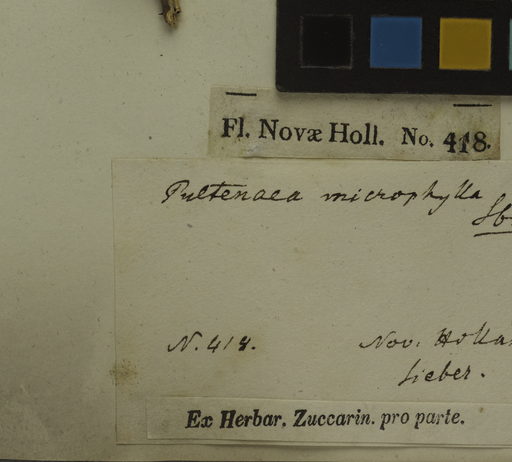 Fl. Novæ Holl. No. 418.
Pultenaea microphylla
N. 418. Nov.
Sieber.
Ex Herbar. Zuccarin. pro parte.